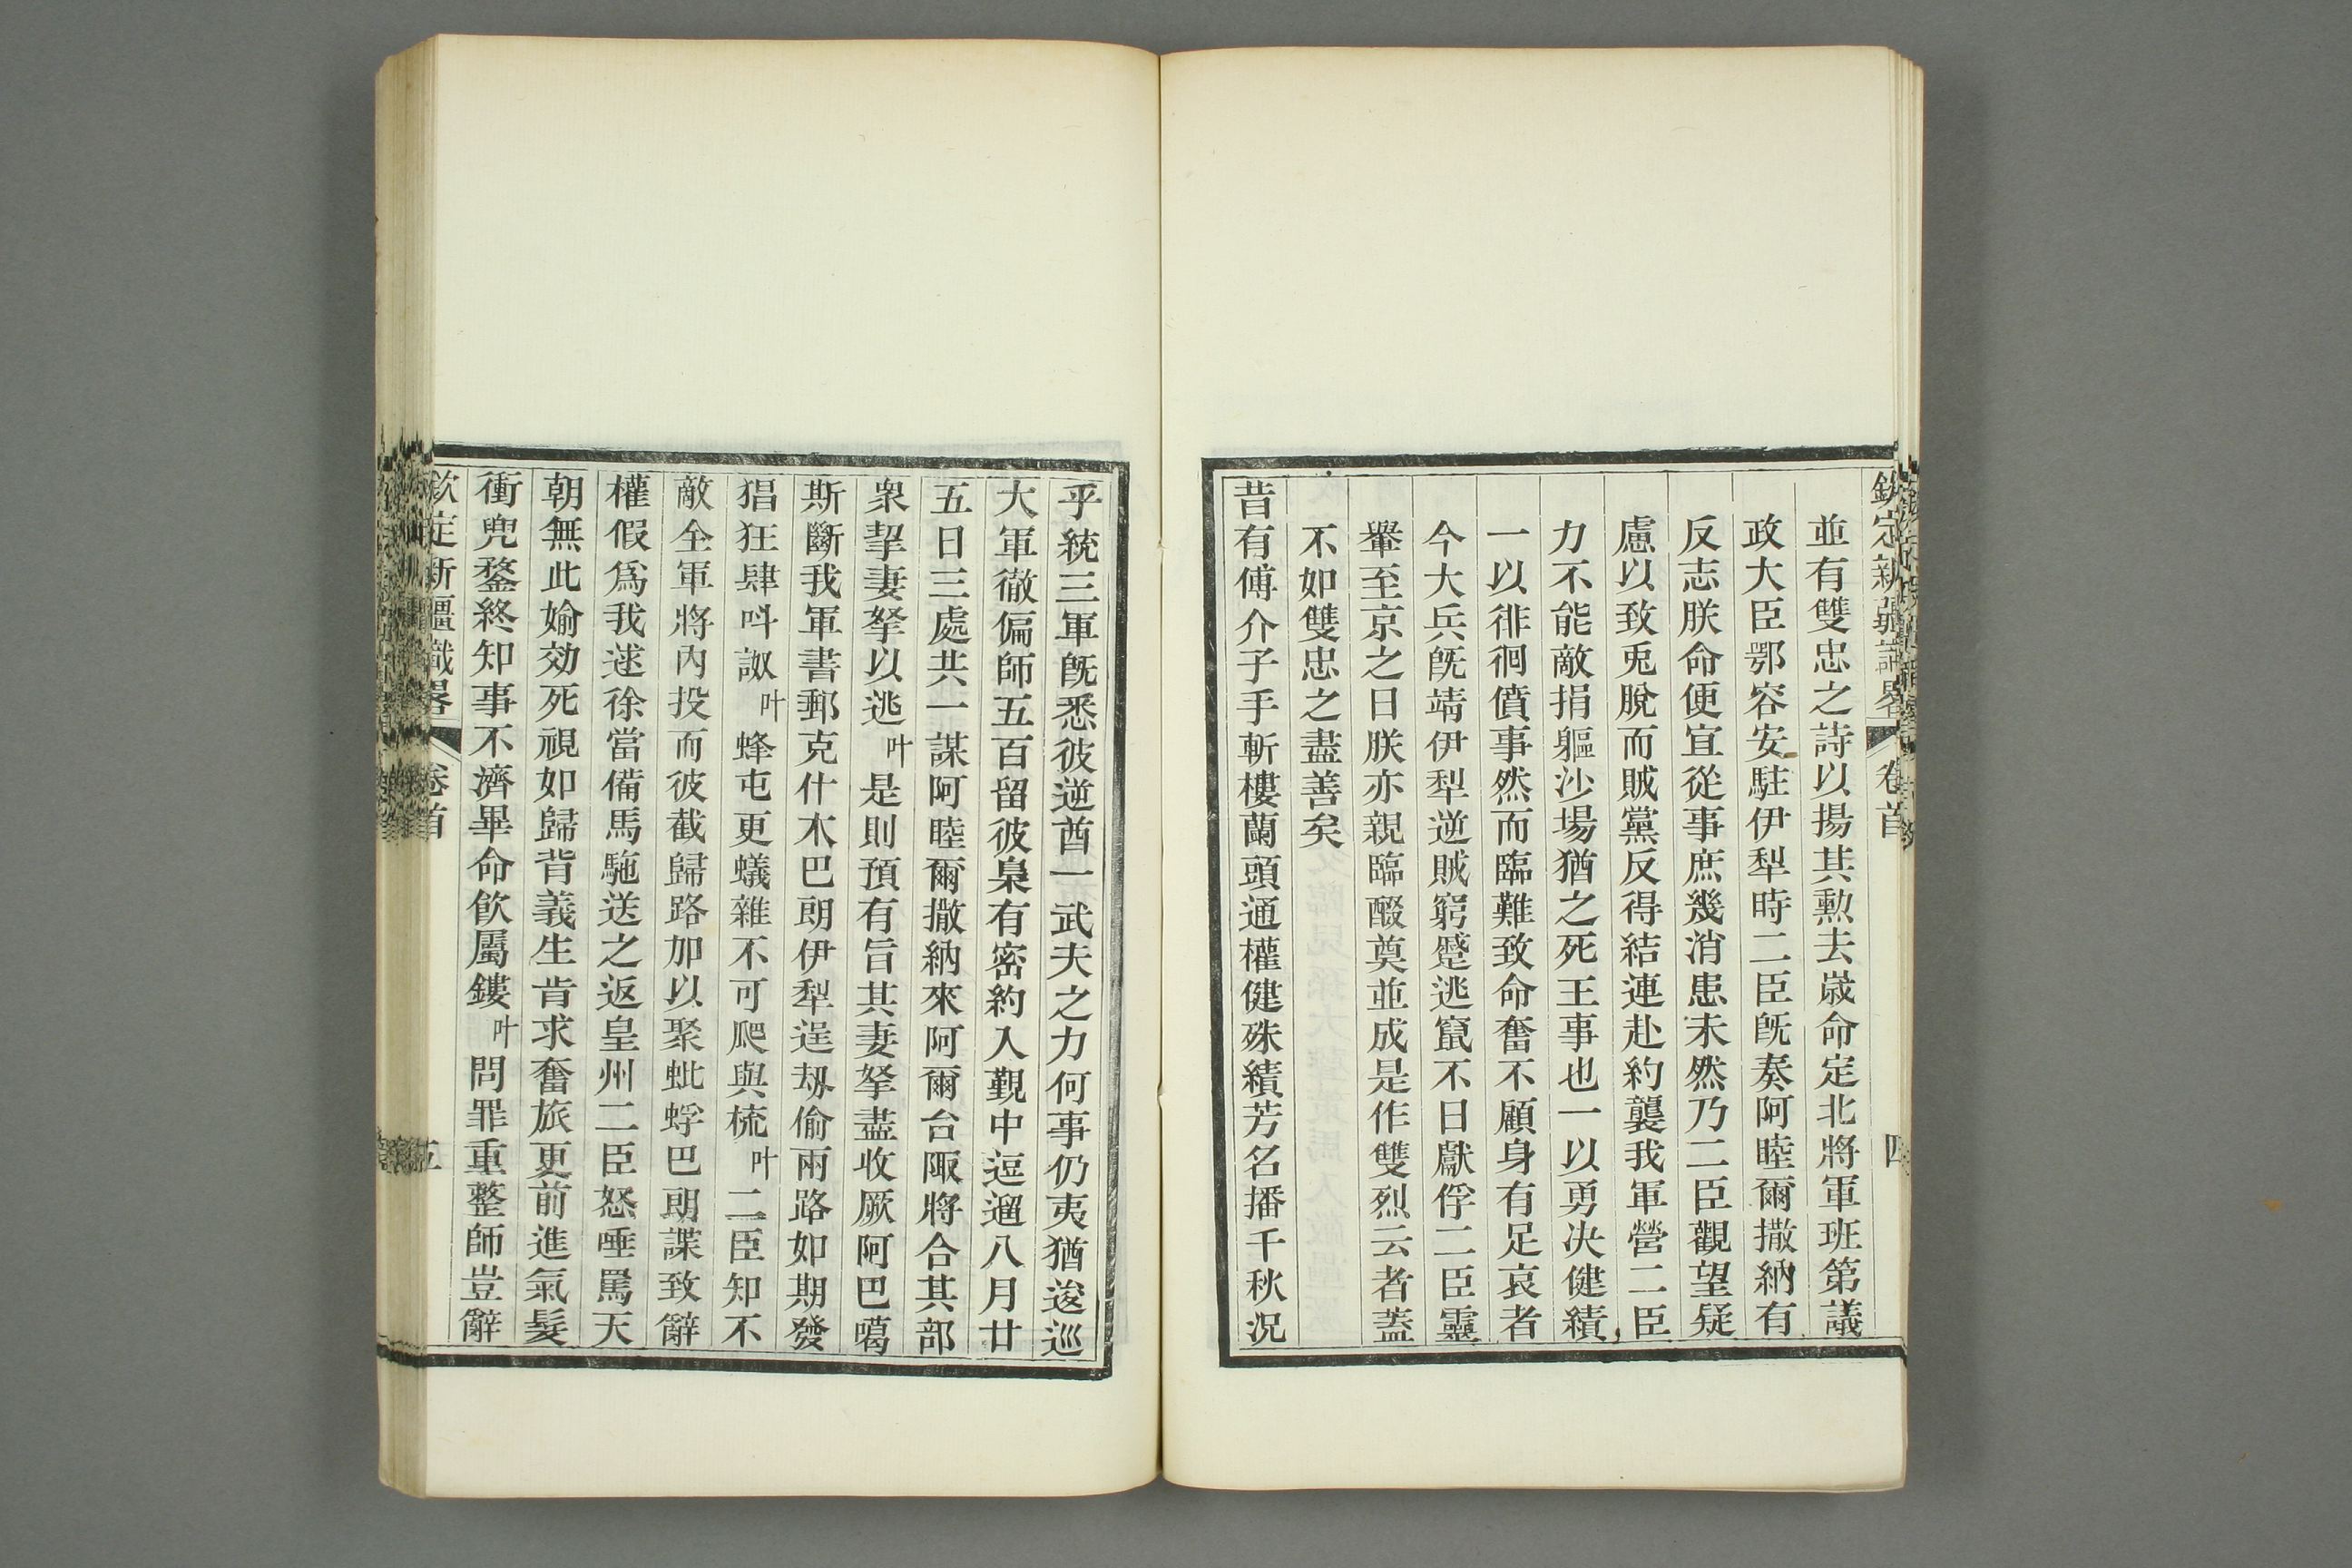 欽定新疆識畧 卷首 四
並有雙忠之詩以揚其勲去歲命定北將軍班第議
政大臣鄂容安駐伊犁時二臣旣奏阿睦爾撒納有
反志朕命便宜從事庶幾消患未然乃二臣觀望疑
慮以致兎脫而賊黨反得結連赴約襲我軍營二臣
力不能敵捐軀沙場猶之死王事也一以勇决健績
一以徘徊僨事然而臨難致命奮不顧身有足哀者
今大兵旣靖伊犁逆賊窮蹙逃竄不日獻俘二臣靈
轝至京之日朕亦親臨醊奠並成是作雙烈云者蓋
不如雙忠之盡善矣
昔有傅介子手斬樓蘭頭通權健殊績芳名播千秋况
乎統三軍旣悉彼逆酋一武夫之力何事仍夷猶逡巡
大軍徹偏師五百留彼梟有密約入覲中逗遛八月廿
五日三處共一謀阿睦爾撒納來阿爾台陬將合其部
衆挈妻孥以逃叶是則預有旨其妻孥盡收厥阿巴噶
斯斷我軍書郵克什木巴朗伊犁逞刼偷兩路如期發
猖狂肆呌詉叶蜂屯更蟻雜不可爬與梳叶二臣知不
敵全軍將內投而彼截歸路加以聚蚍蜉巴朗諜致辭
權假爲我逑徐當備馬馳送之返皇州二臣怒唾罵天
朝無此媮効死視如歸背義生肯求奮旅更前進氣髮
衝兜鍪終知事不濟畢命飮屬鏤叶問罪重整師豈辭
欽定新疆識畧 卷首 五